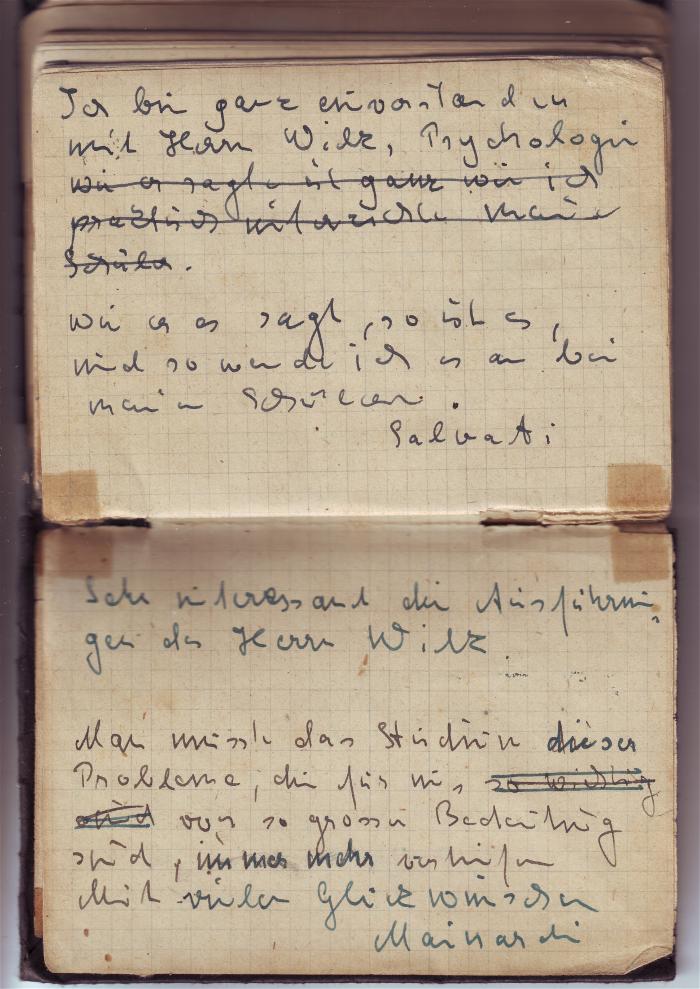 Ich bin ganz einverstanden
mit Herrn Wilk, Psychologie
wie er sagte ist ganz wie ich
praktisch unterrichte meine
Schüler.
wie er es sagt, so ist es,
und so wende ich es an bei
meinen Schülern.
Salvati
Sehr interessant die Ausführun-
gen des Herrn Wilk
Man müsste das Studium dieser
Probleme, die für uns so wichtig
sind von so grosser Bedeutung
sind, immer mehr vertiefen
Mit vielen Glückwünschen
Mainardi